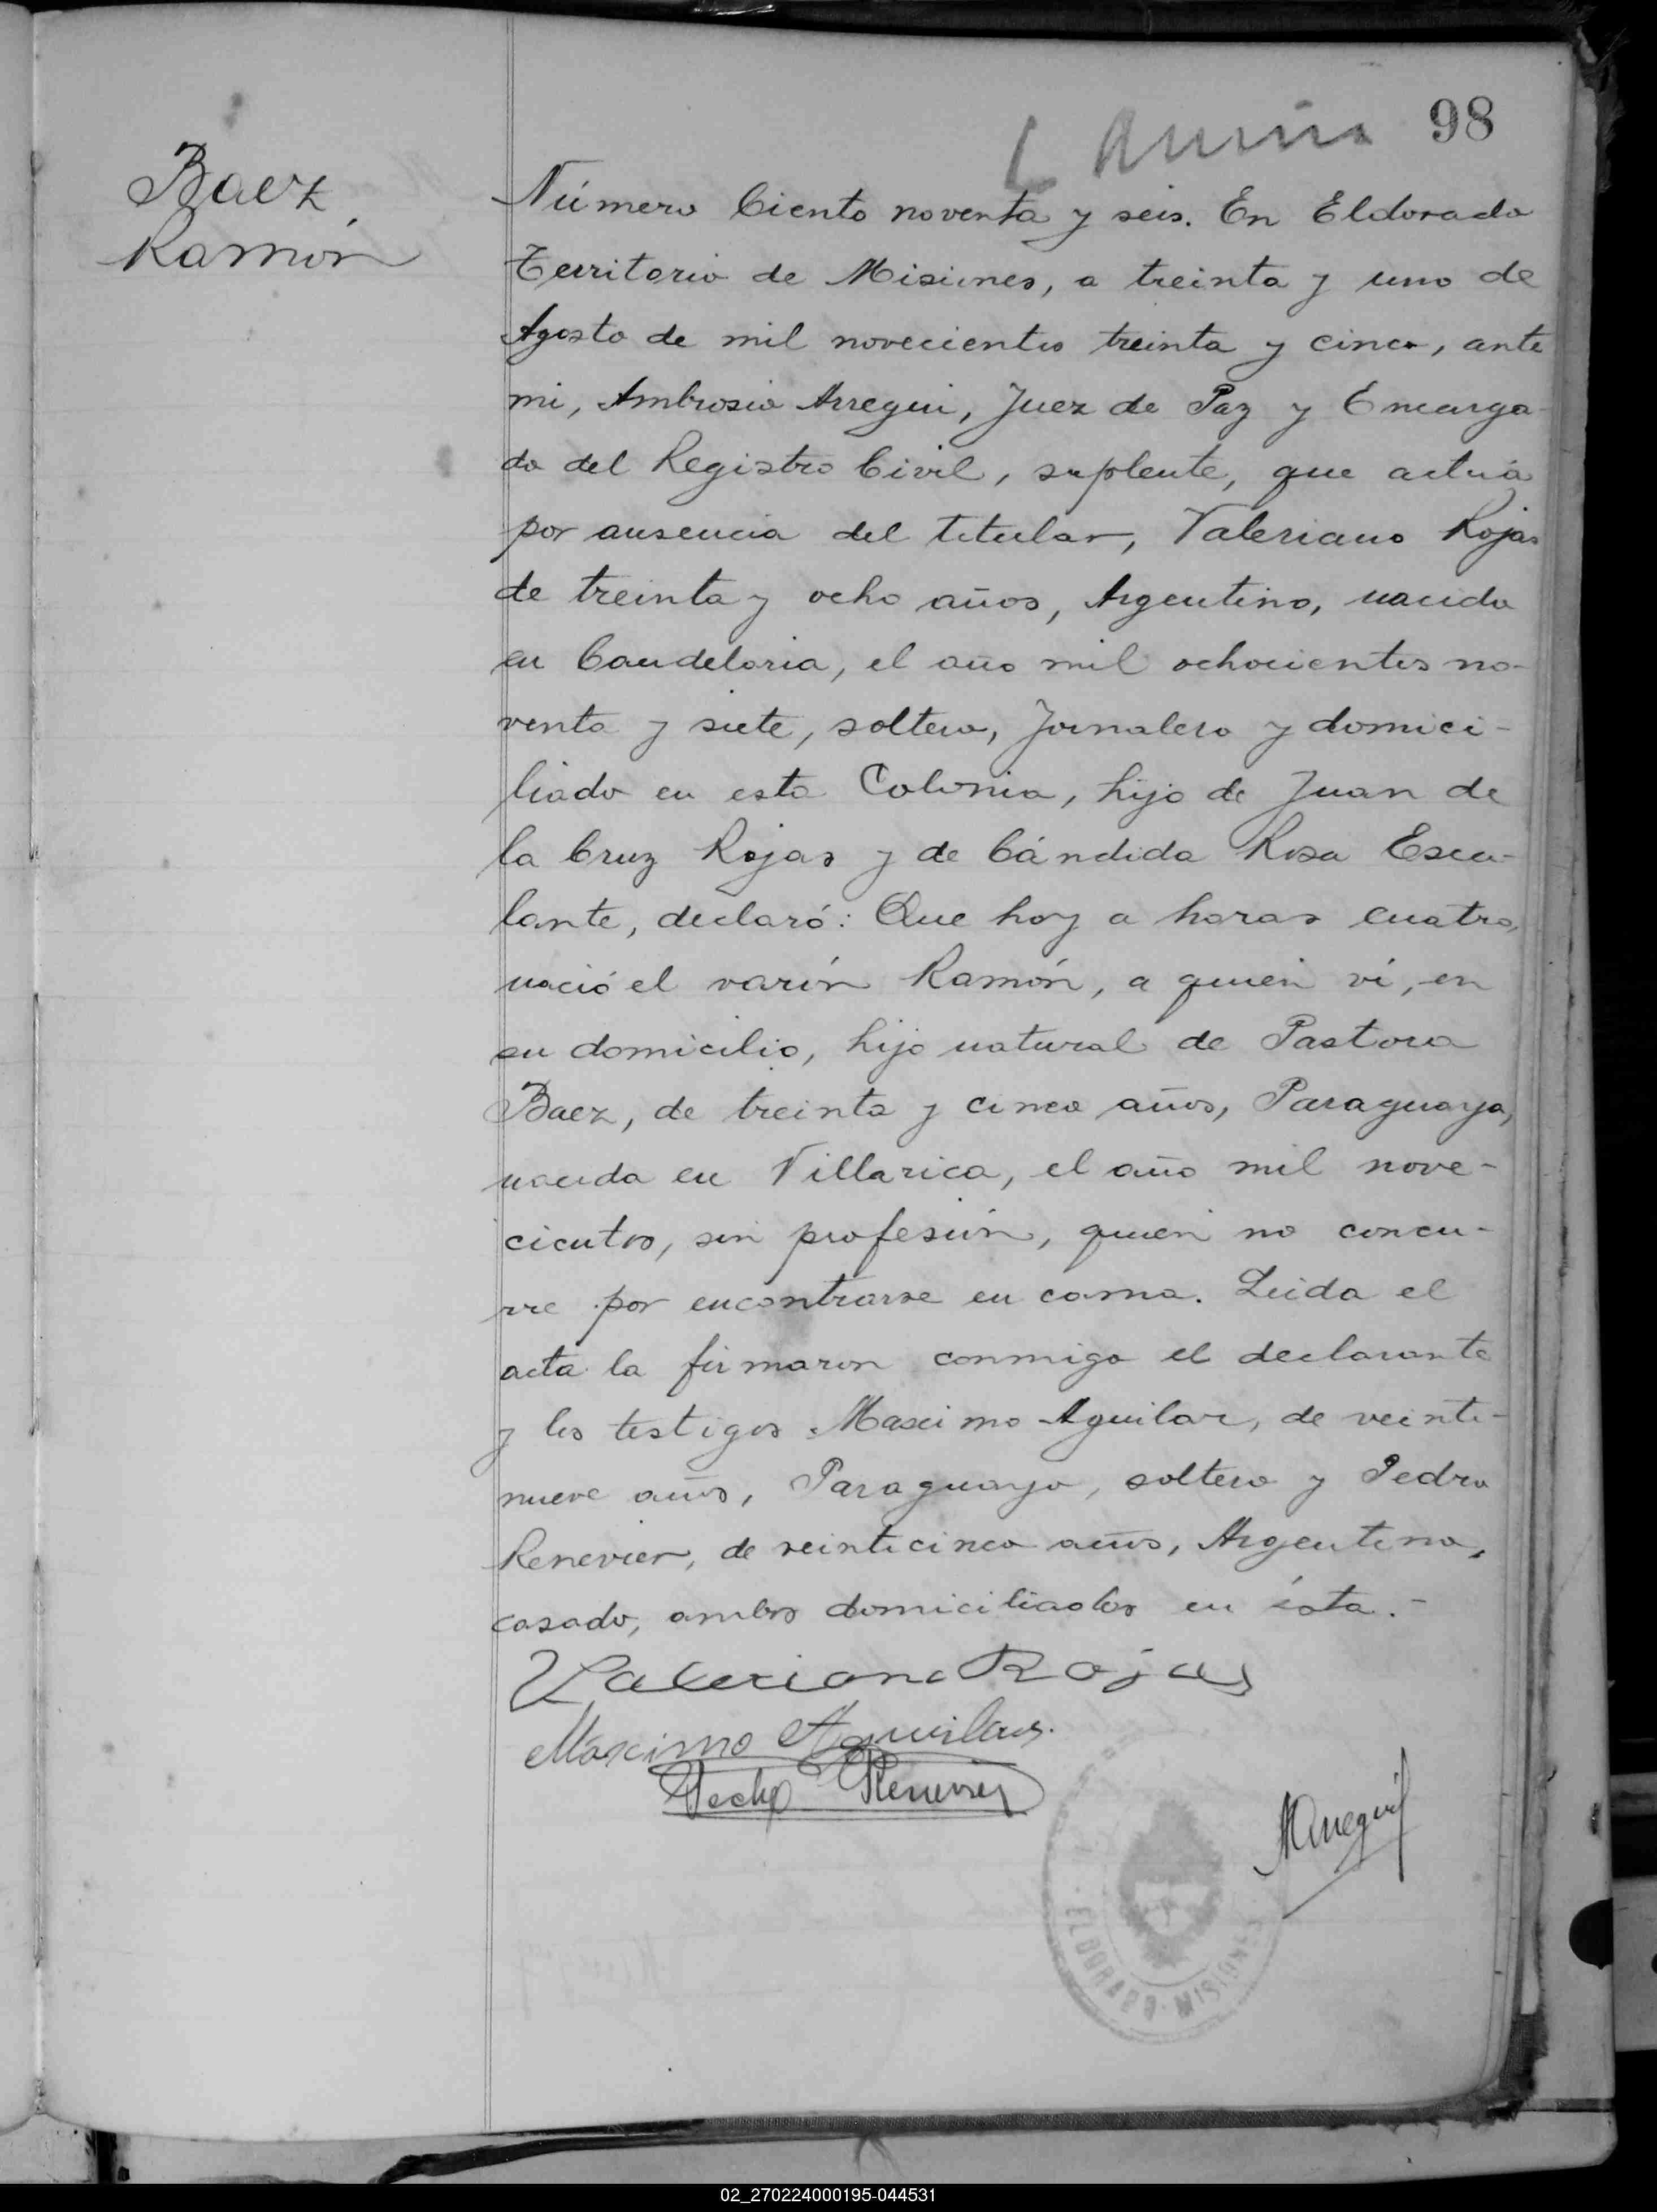 98
Baez
Ramón
Número Ciento noventa y seis. En Eldorado
Territorio de Misiones, a treinta y uno de
Agosto de mil novecientos treinta y cinco, ante
mi, Ambrosio Arregui, Juez de Paz y Encarga-
do del Registro Civil, suplente, que actúa
por ausencia del titular, Valeriano Rojas
de treinta y ocho años, Argentino, nacido
en Candelaria, el año mil ochocientos no-
venta y siete, soltero, Jornalero y domici-
liado en esta Colonia, hijo de Juan de
la Cruz Rojas y de Cándida Rosa Esca-
lante, declaró: Que hoy a horas cuatro,
nació el varón Ramón, a quien ví, en
su domicilio, hijo natural de Pastora
Baez, de treinta y cinco años, Paraguaya,
nacida en Villarica, el año mil nove-
cientos, sin profesión, quien no concu-
rre por encontrarse en cama. Leida el
acta la firmaron conmigo el declarante
y los testigos Maximo Aguilar, de veinti-
nueve años, Paraguayo, soltero y Pedro
Renevier, de veinticinco años, Argentino,
casado, ambos domiciliados en ésta.-
Valeriano Rojas
Máximo Aguilar.
Pedro Renevier
AArregui
ELDORADO · MISIONES
02_270224000195-044531